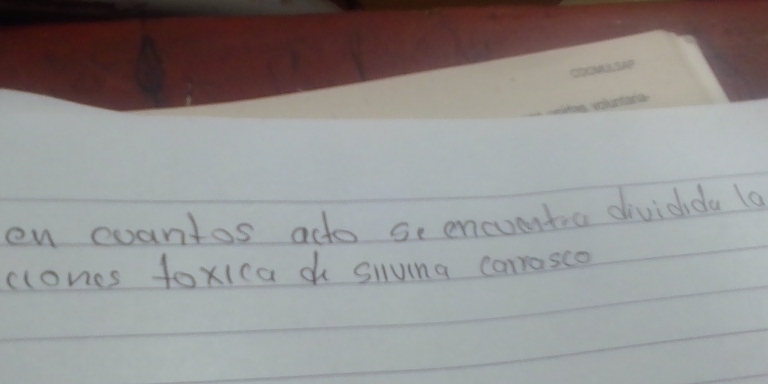 COOMULSAP
voluntaria-
en cuantos acto se encuentra dividida la
ciones toxica de silvina carrasco